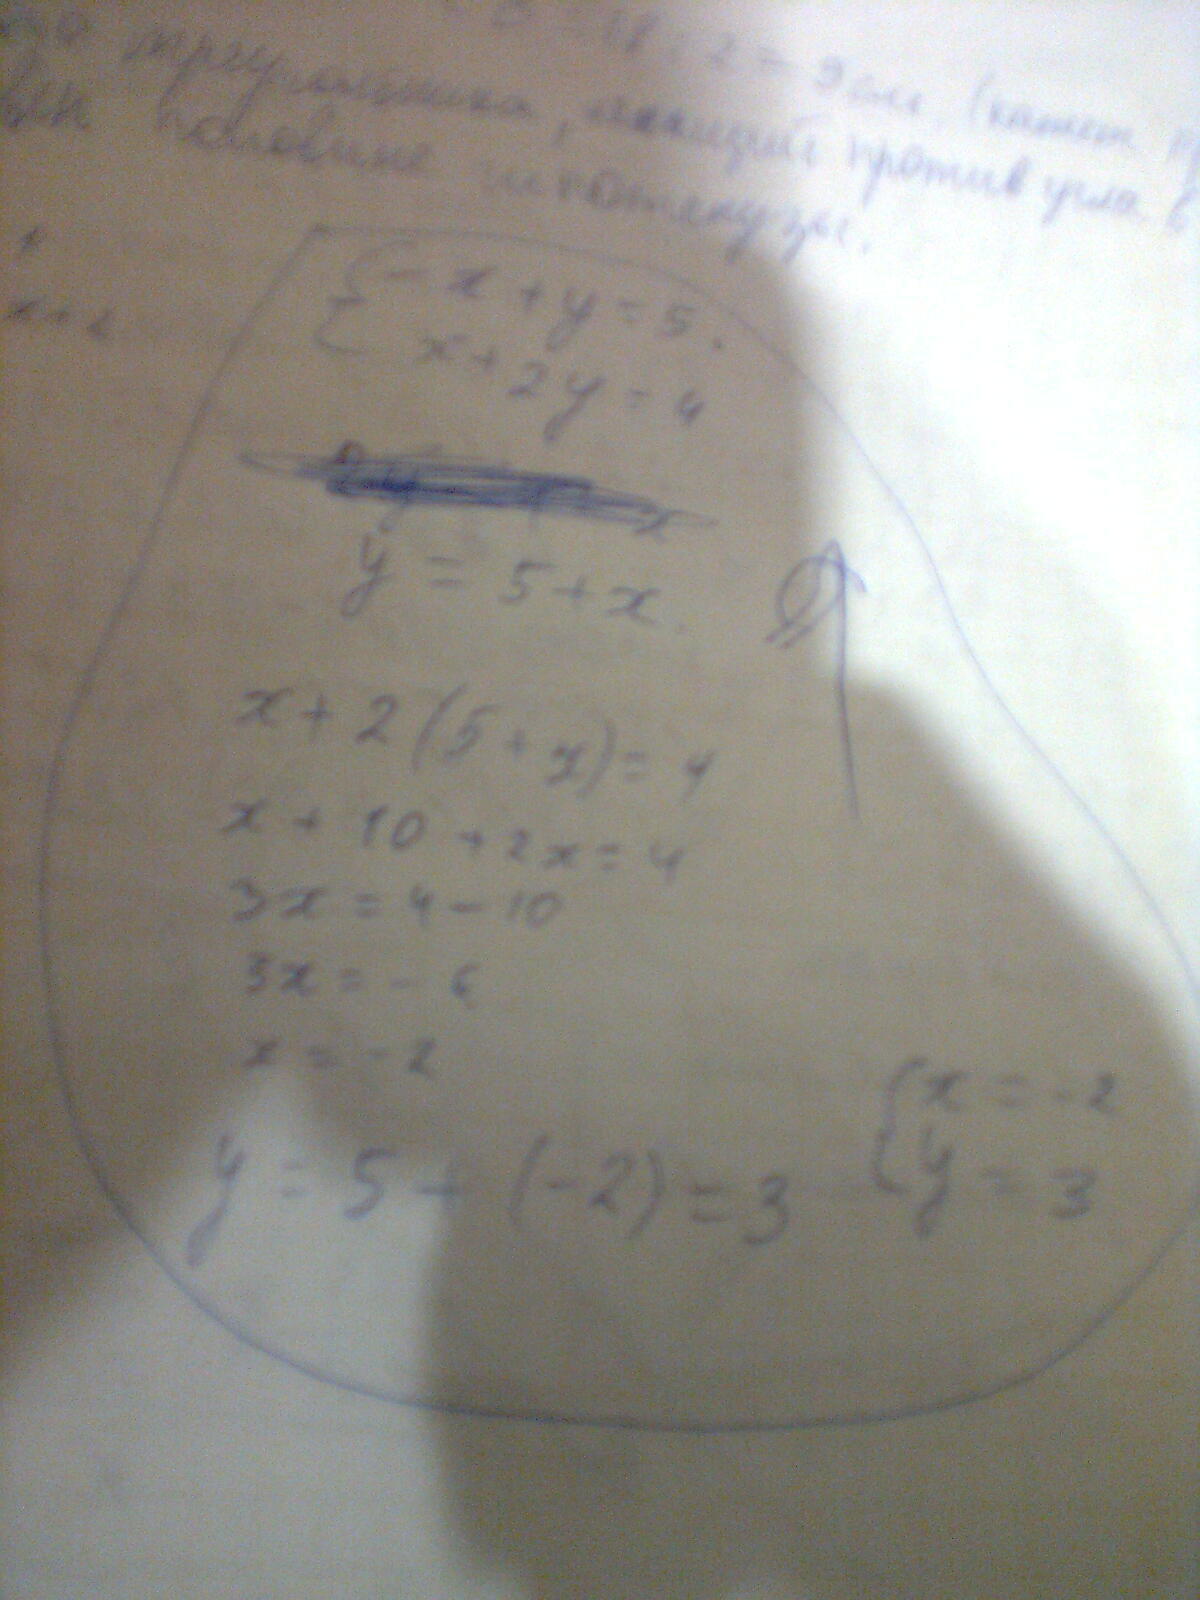 18 : 2 = 9 см. (катет
треугольника, лежащий против угла в
половине гипотенузы.
{ - x + y = 5.
x + 2y = 4
y = 5 + x.
x + 2(5 + x) = 4
x + 10 + 2x = 4
3x = 4 - 10
3x = - 6
x = - 2
y = 5 + (-2) = 3
{ x = -2
y = 3